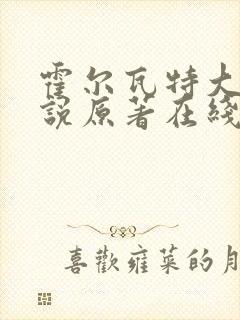 霍尔瓦特大
說原著在綫
喜歡雍菜的月